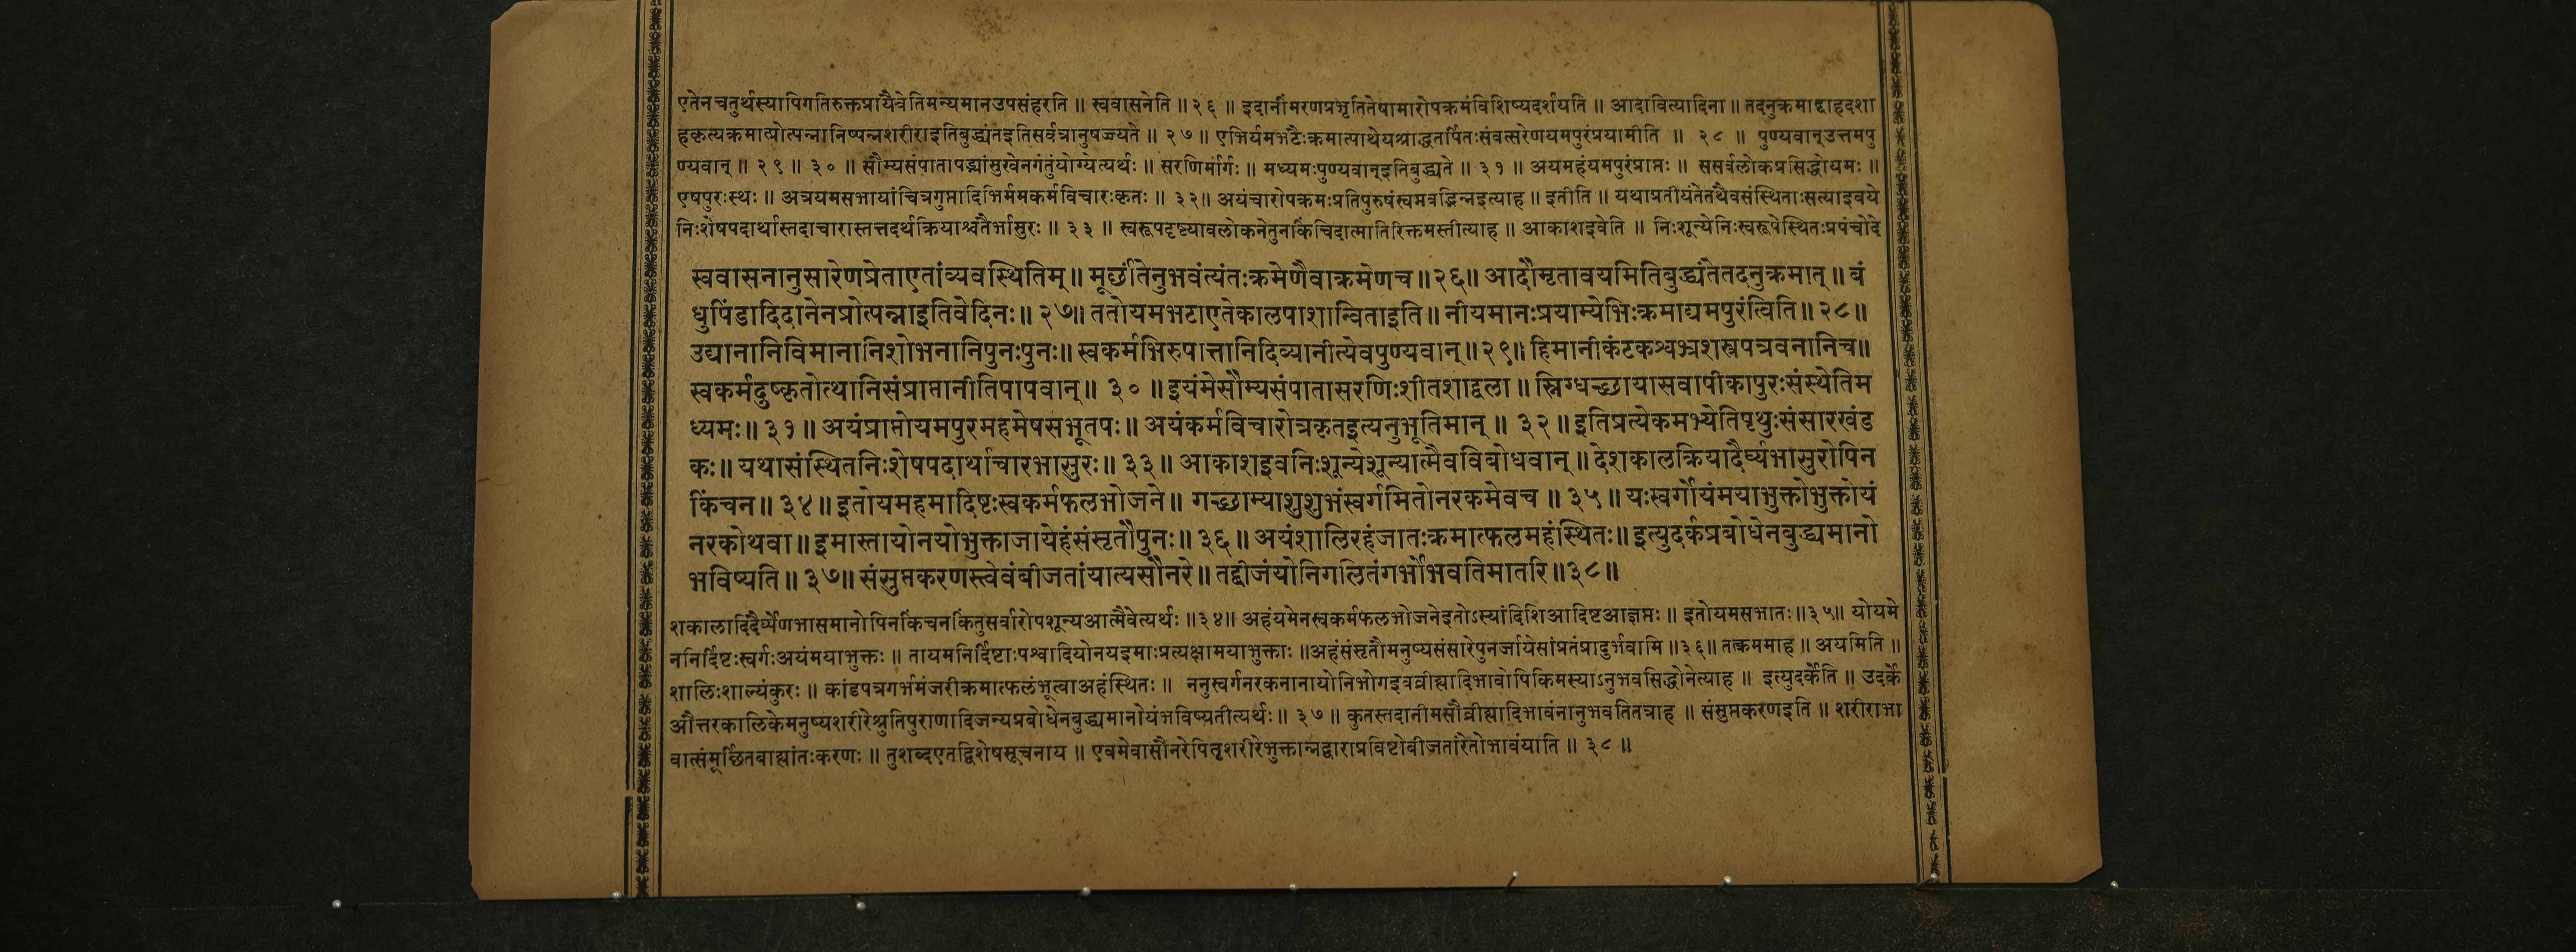 एतेनचतुर्थस्यापिगतिरुक्तप्रायैवेतिमन्यमानउपसंहरति ॥ स्ववासनेति ॥ २६ ॥ इदानींमरणप्रभृतितेषामारोपक्रमंविशिष्यदर्शयति ॥ आदावित्यादिना ॥ तदनुक्रमाद्दाहदशा
हकृत्यक्रमात्प्रोत्पन्नानिष्पन्नशरीराइतिबुद्ध्यंतइतिसर्वत्रानुषज्यते ॥ २७ ॥ एभिर्यमभटैःक्रमात्पाथेयश्राद्धतर्पितःसंवत्सरेणयमपुरंप्रयामीति ॥ २८ ॥ पुण्यवान्उत्तमपु
ण्यवान् ॥ २९ ॥ ३० ॥ सौम्यसंपातापद्भ्यांसुखेनगंतुंयोग्येत्यर्थः ॥ सरणिर्मार्गः ॥ मध्यमःपुण्यवान्इतिबुद्ध्यते ॥ ३१ ॥ अयमहंयमपुरंप्राप्तः ॥ ससर्वलोकप्रसिद्धोयमः ॥
एषपुरःस्थः ॥ अत्रयमसभायांचित्रगुप्तादिभिर्ममकर्मविचारःकृतः ॥ ३२॥ अयंचारोपक्रमःप्रतिपुरुषंस्वप्नवद्भिन्नइत्याह ॥ इतीति ॥ यथाप्रतीयंतेतथैवसंस्थिताःसत्याइवये
निःशेषपदार्थास्तदाचारास्तत्तदर्थक्रियाश्चतैर्भासुरः ॥ ३३ ॥ स्वरूपदृष्ट्यावलोकनेतुनकिंचिदात्मातिरिक्तमस्तीत्याह ॥ आकाशइवेति ॥ निःशून्येनिःस्वरूपेस्थितःप्रपंचोदे
स्ववासनानुसारेणप्रेताएतांव्यवस्थितिम् ॥ मूर्छांतेनुभवंत्यंतःक्रमेणैवाक्रमेणच ॥ २६॥ आदौमृतावयमितिबुद्ध्यंतेतदनुक्रमात् ॥ बं
धुपिंडादिदानेनप्रोत्पन्नाइतिवेदिनः ॥ २७॥ ततोयमभटाएतेकालपाशान्विताइति ॥ नीयमानःप्रयाम्येभिःक्रमाद्यमपुरंत्विति ॥ २८ ॥
उद्यानानिविमानानिशोभनानिपुनःपुनः ॥ स्वकर्मभिरुपात्तानिदिव्यानीत्येवपुण्यवान् ॥ २९ ॥ हिमानीकंटकश्वभ्रशस्त्रपत्रवनानिच ॥
स्वकर्मदुष्कृतोत्थानिसंप्राप्तानीतिपापवान् ॥ ३० ॥ इयंमेसौम्यसंपातासरणिःशीतशाद्वला ॥ स्निग्धच्छायासवापीकापुरःसंस्थेतिम
ध्यमः ॥ ३१ ॥ अयंप्राप्तोयमपुरमहमेषसभूतपः ॥ अयंकर्मविचारोत्रकृतइत्यनुभूतिमान् ॥ ३२ ॥ इतिप्रत्येकमभ्येतिपृथुःसंसारखंड
कः ॥ यथासंस्थितनिःशेषपदार्थाचारभासुरः ॥ ३३ ॥ आकाशइवनिःशून्येशून्यात्मैवविबोधवान् ॥ देशकालक्रियादैर्घ्यभासुरोपिन
किंचन ॥ ३४ ॥ इतोयमहमादिष्टःस्वकर्मफलभोजने ॥ गच्छाम्याशुशुभंस्वर्गमितोनरकमेवच ॥ ३५ ॥ यःस्वर्गोयंमयाभुक्तोभुक्तोयं
नरकोथवा ॥ इमास्तायोनयोभुक्ताजायेहंसंसृतौपुनः ॥ ३६ ॥ अयंशालिरहंजातःक्रमात्फलमहंस्थितः ॥ इत्युदर्कप्रबोधेनबुद्ध्यमानो
भविष्यति ॥ ३७॥ संसुप्तकरणस्त्वेवंबीजतांयात्यसौनरे ॥ तद्बीजंयोनिगलितंगर्भोभवतिमातरि ॥३८॥
शकालादिदैर्घ्येणभासमानोपिनकिंचनकिंतुसर्वारोपशून्यआत्मैवेत्यर्थः ॥३४॥ अहंयमेनस्वकर्मफलभोजनेइतोऽस्यांदिशिआदिष्टआज्ञप्तः ॥ इतोयमसभातः ॥३५॥ योयमे
ननिर्दिष्टःस्वर्गःअयंमयाभुक्तः ॥ तायमनिर्दिष्टाःपश्वादियोनयइमाःप्रत्यक्षामयाभुक्ताः ॥अहंसंसृतौमनुष्यसंसारेपुनर्जायेसांप्रतंप्रादुर्भवामि ॥३६॥ तत्क्रममाह ॥ अयमिति ॥
शालिःशाल्यंकुरः ॥ कांडपत्रगर्भमंजरीक्रमात्फलंभूत्वाअहंस्थितः ॥ ननुस्वर्गनरकनानायोनिभोगइवव्रीह्यादिभावोपिकिमस्याऽनुभवसिद्धोनेत्याह ॥ इत्युदर्केति ॥ उदर्के
औत्तरकालिकेमनुष्यशरीरेश्रुतिपुराणादिजन्यप्रबोधेनबुद्ध्यमानोयंभविष्यतीत्यर्थः ॥ ३७ ॥ कुतस्तदानीमसौव्रीह्यादिभावंनानुभवतितत्राह ॥ संसुप्तकरणइति ॥ शरीराभा
वात्संमूर्छितबाह्यांतःकरणः ॥ तुशब्दएतद्विशेषसूचनाय ॥ एवमेवासौनरेपितृशरीरेभुक्तान्नद्वाराप्रविष्टोबीजतांरेतोभावंयाति ॥ ३८ ॥